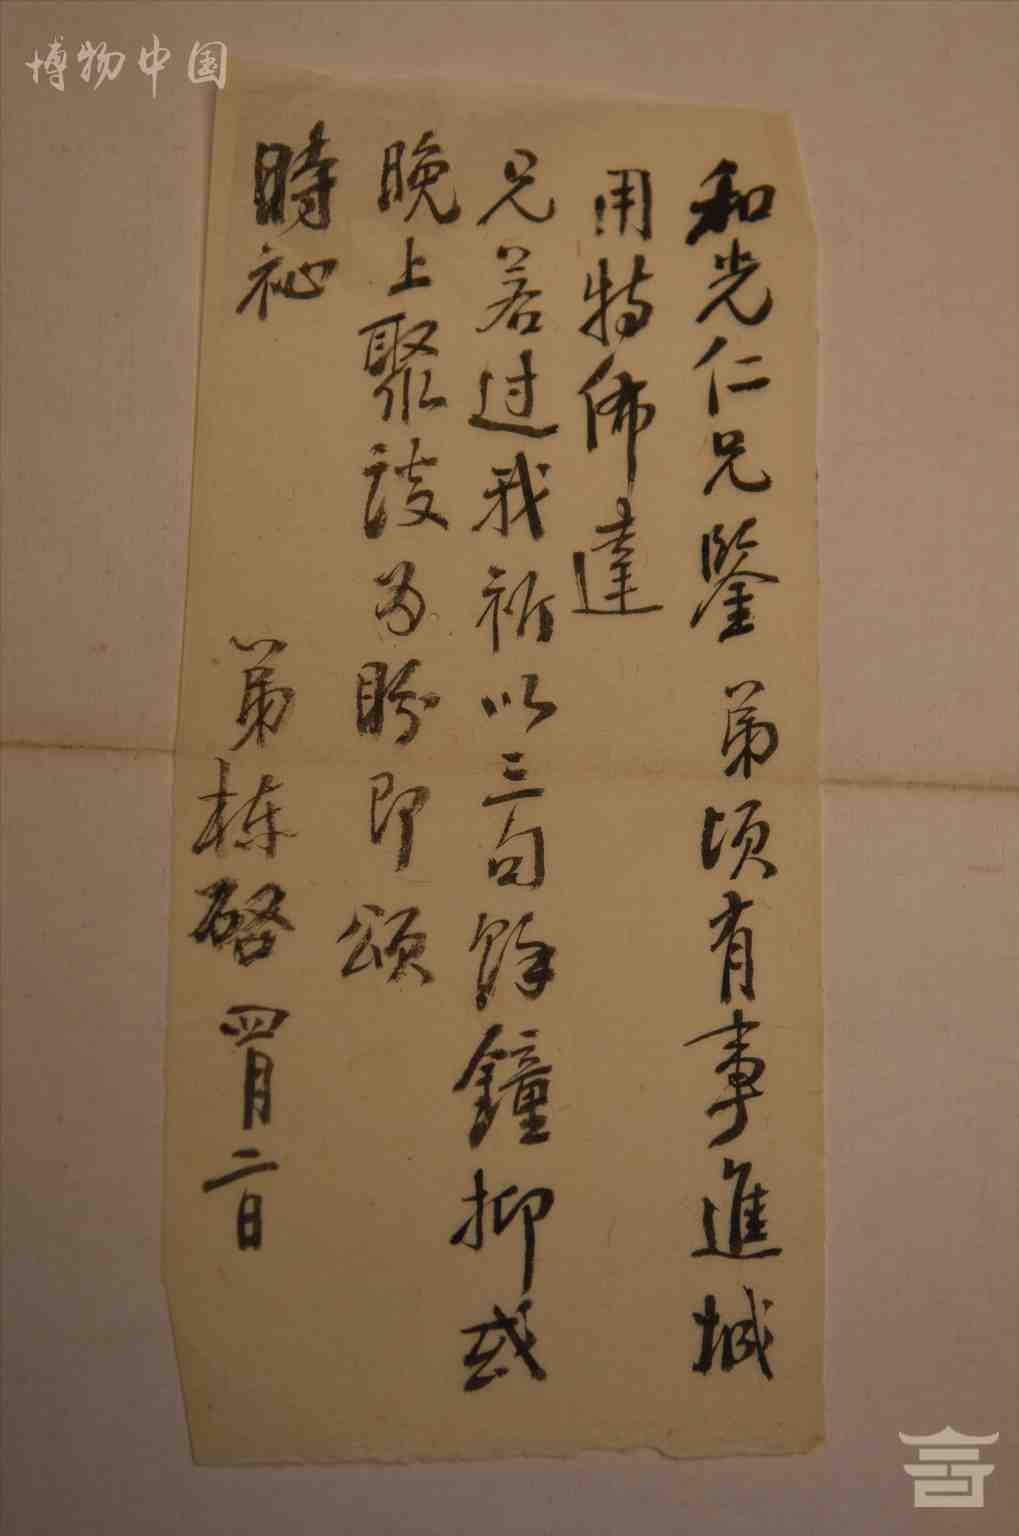 博物中国
和光仁兄鑒 弟頃有事進城
用特佈達
兄若过我祈以三句餘鐘抑或
晚上聚談为盼即頌
時祉
弟栋啓 四月二日